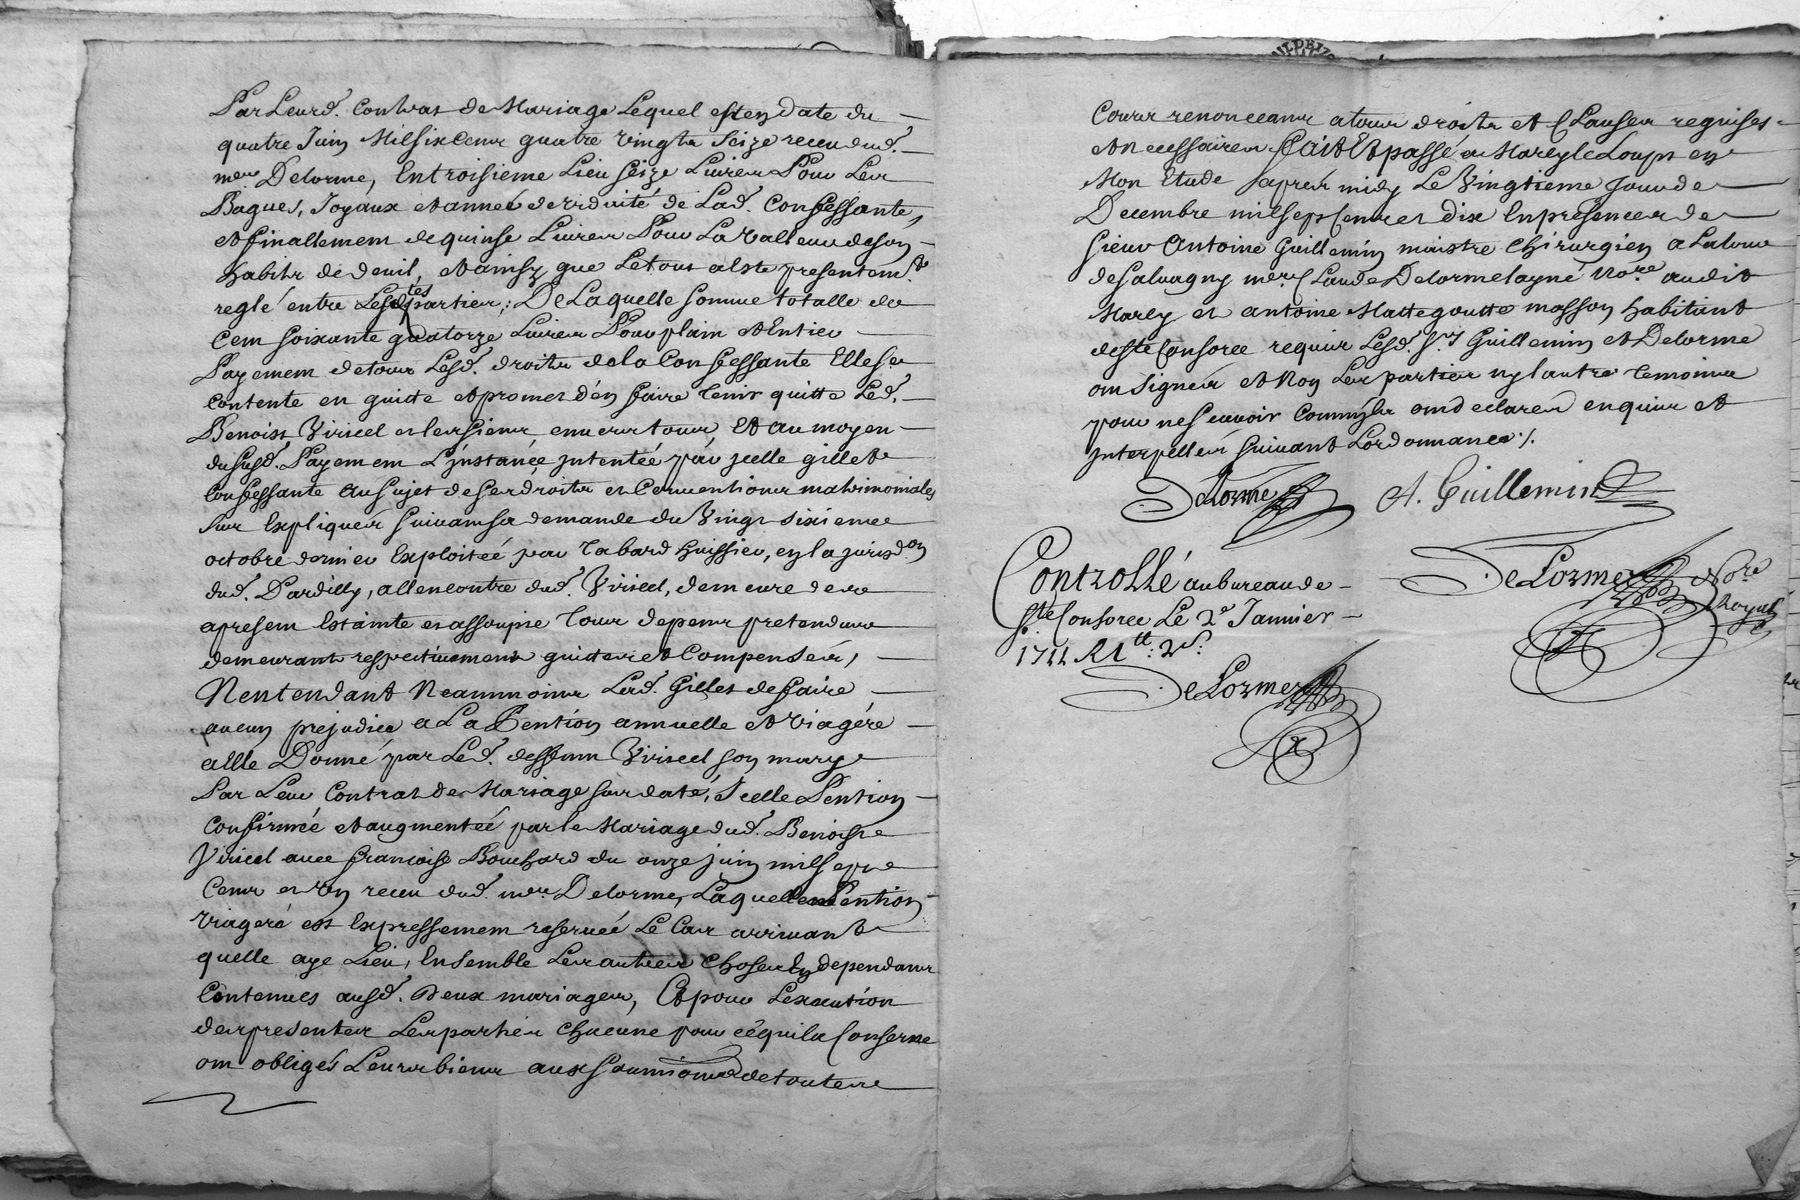 Par Leurd. Contrat de Mariage Lequel est en Date du
quatre Juin Mil six Cens quatre vingts seize receu dud.
me Delorme, En troisieme Lieu seize Livres Pour Les
Bagues, Joyaux et année de viduité de Lad. Confessante,
et finallement de quinse Livres Pour La valleur de son
habits de deuil, et ainsy que Le tout a esté presentemt
reglé entre Lesdtes parties; De Laquelle somme totalle de
Cent soixante quatorze Livres Pour plain et Entier
Payement de tous Lesd. droits de la Confessante Elle se
Contente en quitte et promet d'en faire tenir quitte Led.
Benoist Viricel et les siens envers tous, Et au moyen
du susd. Payement L'instance intentée par icelle gillet
Confessante au sujet de ses droits et Conventions matrimoniales
sus Expliqués suivant sa demande du Vingt sixieme
octobre dernier Exploitée par Tabard huissier, en la jurisdon
dud. Dardilly, allencontre dud. Viricel, demeure dere
a present Estainte et assoupie tous depens pretendus
demeurants respectivement quittes et Compensés,
N'entendant Neanmoins Lad. Gillet de faire
aucun prejudice a La Pention annuelle et viagére
a Elle Donné par Led. deffunt Viricel son mary
Par Leur Contrat de Mariage sus daté, Icelle Pention
Confirmée et augmentée par le Mariage dud. Benoist
Viricel avec françoise Bouchard du onze juin mil sept
Cens et un receu dud. me Delorme, Laquelle Pention
viageré est Expressement reservée Le Cas arrivant
quelle aye Lieu, Ensemble Les autres choses En dependant
Contenues ausd. Deux mariages, Et pour L'exaution
des presentes Les parties chacune pour cé qui la Conserne
ont obligés Leurs biens aux soumitions de toutes
Cours renonceant a tous droits et Clauses requises
et necessaires fait Et passé a Marcy le Loup en
Mon Etude aprés midy Le Vingtieme Jour de
Decembre mil sept Cens et dix En presence de
sieur Antoine Guillemin maistre chirurgien a Latour
de Salvagny me Claude Delorme layné Nore audit
Marcy et antoine Mattegoutte masson habitant
de ste Consorce requis Lesd. Srs Guillemin et Delorme
ont signés et Non Les parties ny lautre temoins
pour ne scavoir Comm'ils ont declarés enquis et
interpellés suivant Lordonnance ./.
Delorme A. Guillemin
Controllé au bureau de
Ste Consorce Le 2e Janvier
DeLorme Nore
Royal
DeLorme